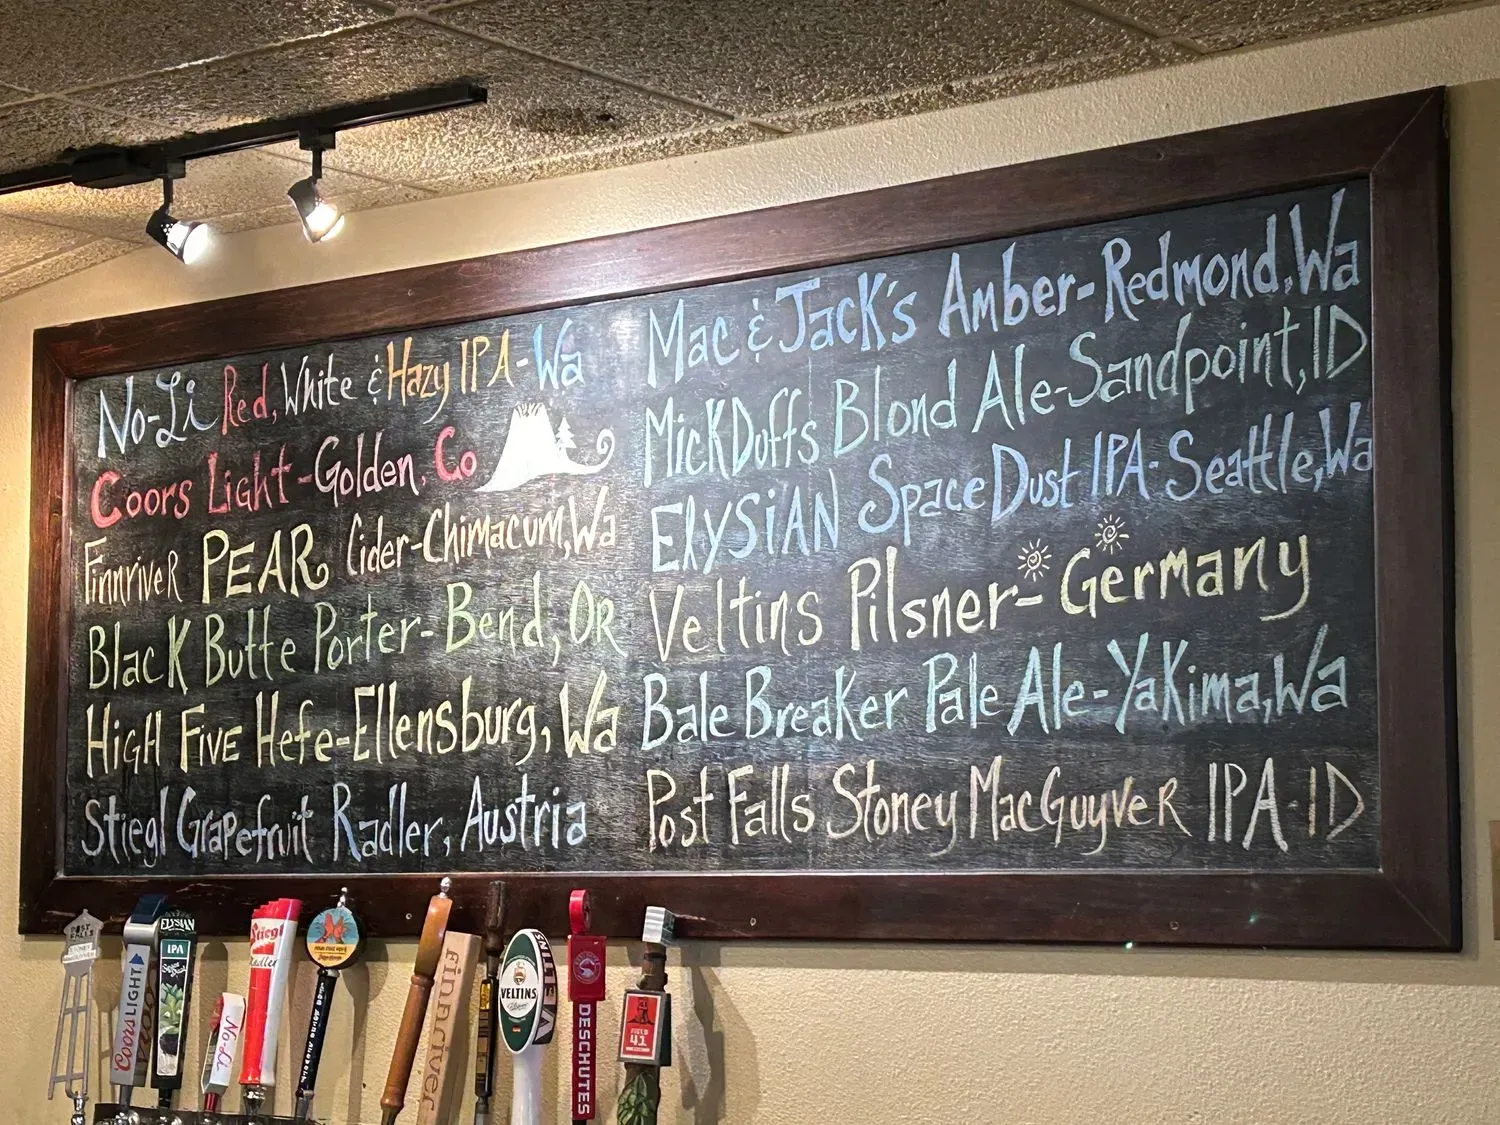 No-Li Red, White & Hazy IPA-Wa
Coors Light-Golden, Co
Finnriver PEAR Cider-Chimacum, Wa
Black Butte Porter-Bend, OR
High Five Hefe-Ellensburg, Wa
Stiegl Grapefruit Radler, Austria
Mac & Jack's Amber-Redmond, Wa
MickDuffs Blond Ale-Sandpoint, ID
Elysian Space Dust IPA-Seattle, Wa
Veltins Pilsner-Germany
Bale Breaker Pale Ale-Yakima, Wa
Post Falls Stoney MacGuyver IPA-ID
POST
FALLS
Coors LIGHT
ELYSIAN
IPA
Space Dust
No-Li
Stiegl
Radler
finnriver
VELTINS
VELTINS
DESCHUTES
FIELD
41